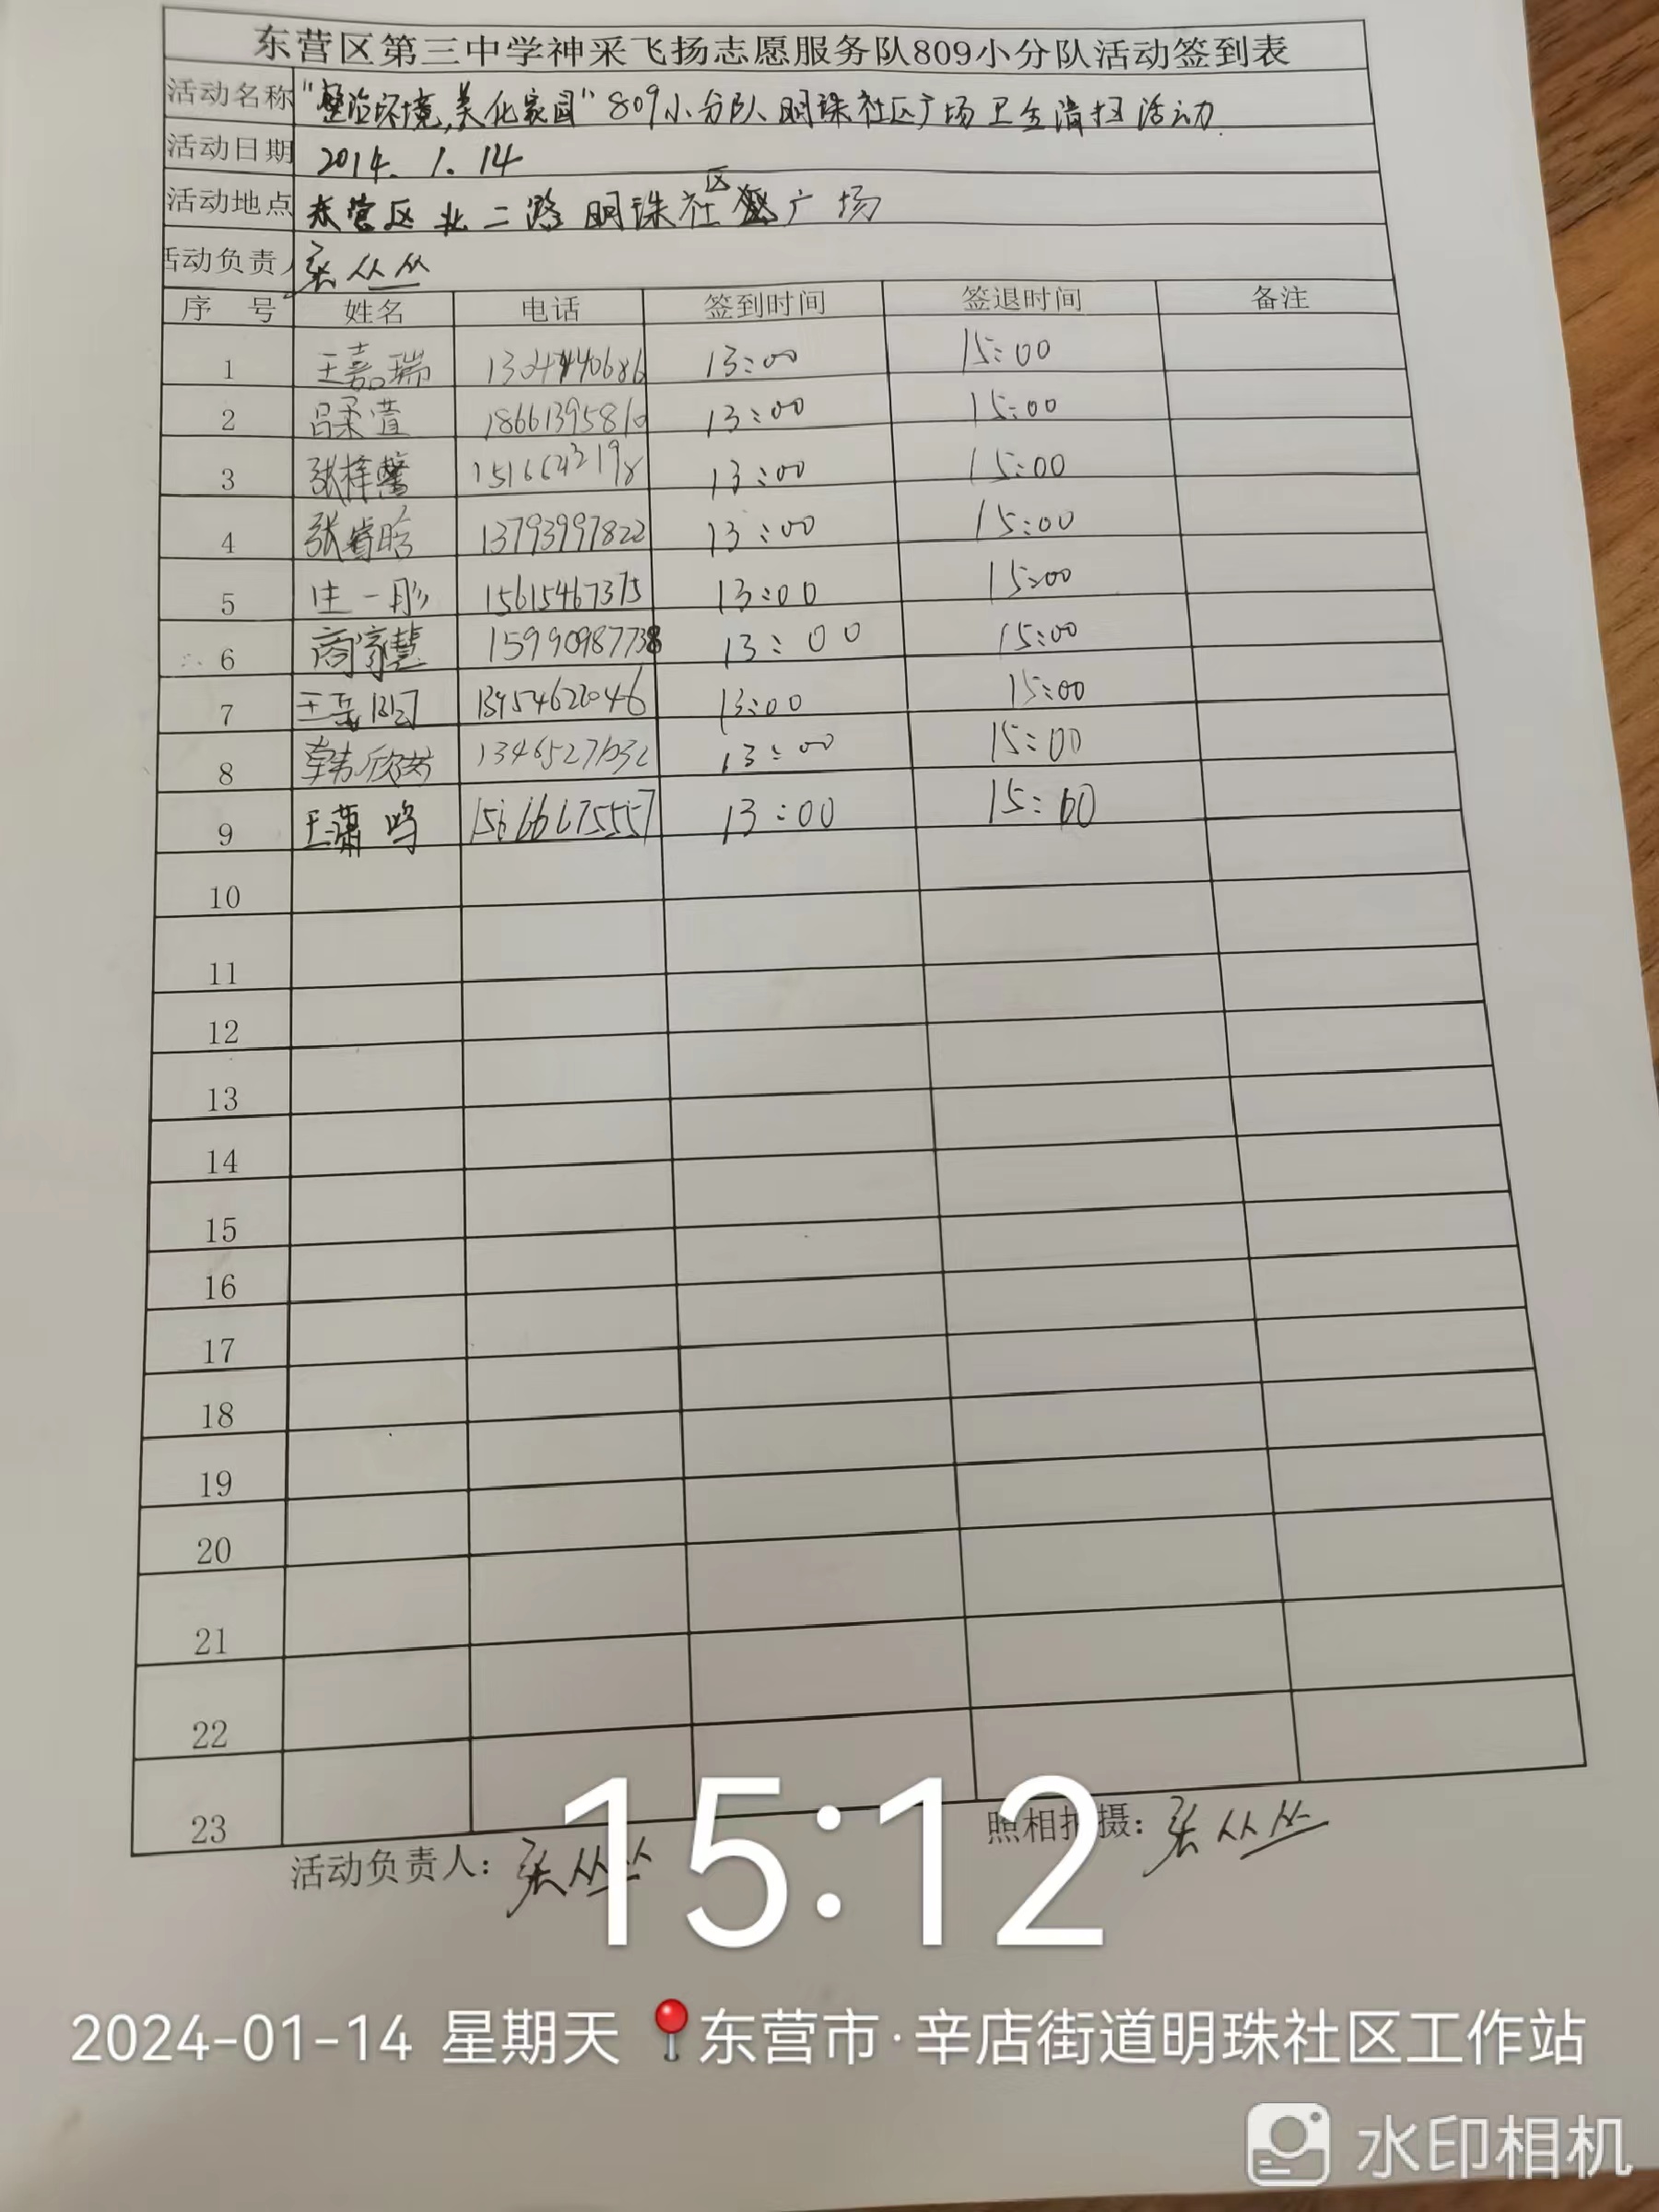 东营区第三中学神采飞扬志愿服务队809小分队活动签到表
活动名称 "整治环境,美化家园"809小分队明珠社区广场卫生清扫活动.
活动日期 2014. 1. 14
活动地点 东营区北二路明珠社区广场
活动负责人 张丛丛
序 号 姓名 电话 签到时间 签退时间 备注
1 王嘉瑞 13:00 15:00
2 吕柔萱 18661395810 13:00 15:00
3 张梓馨 1516642198 13:00 15:00
4 张睿晗 13793997822 13:00 15:00
5 庄一彤 15615467375 13:00 15:00
6 商家慧 15990987738 13:00 15:00
7 王岳 13954622046 13:00 15:00
8 韩欣 13:00 15:00
9 王潇鸣 15666675557 13:00 15:00
10
11
12
13
14
15
16
17
18
19
20
21
22
23
活动负责人: 张丛丛 照相拍摄: 张丛丛
15:12
2024-01-14 星期天 东营市·辛店街道明珠社区工作站
水印相机